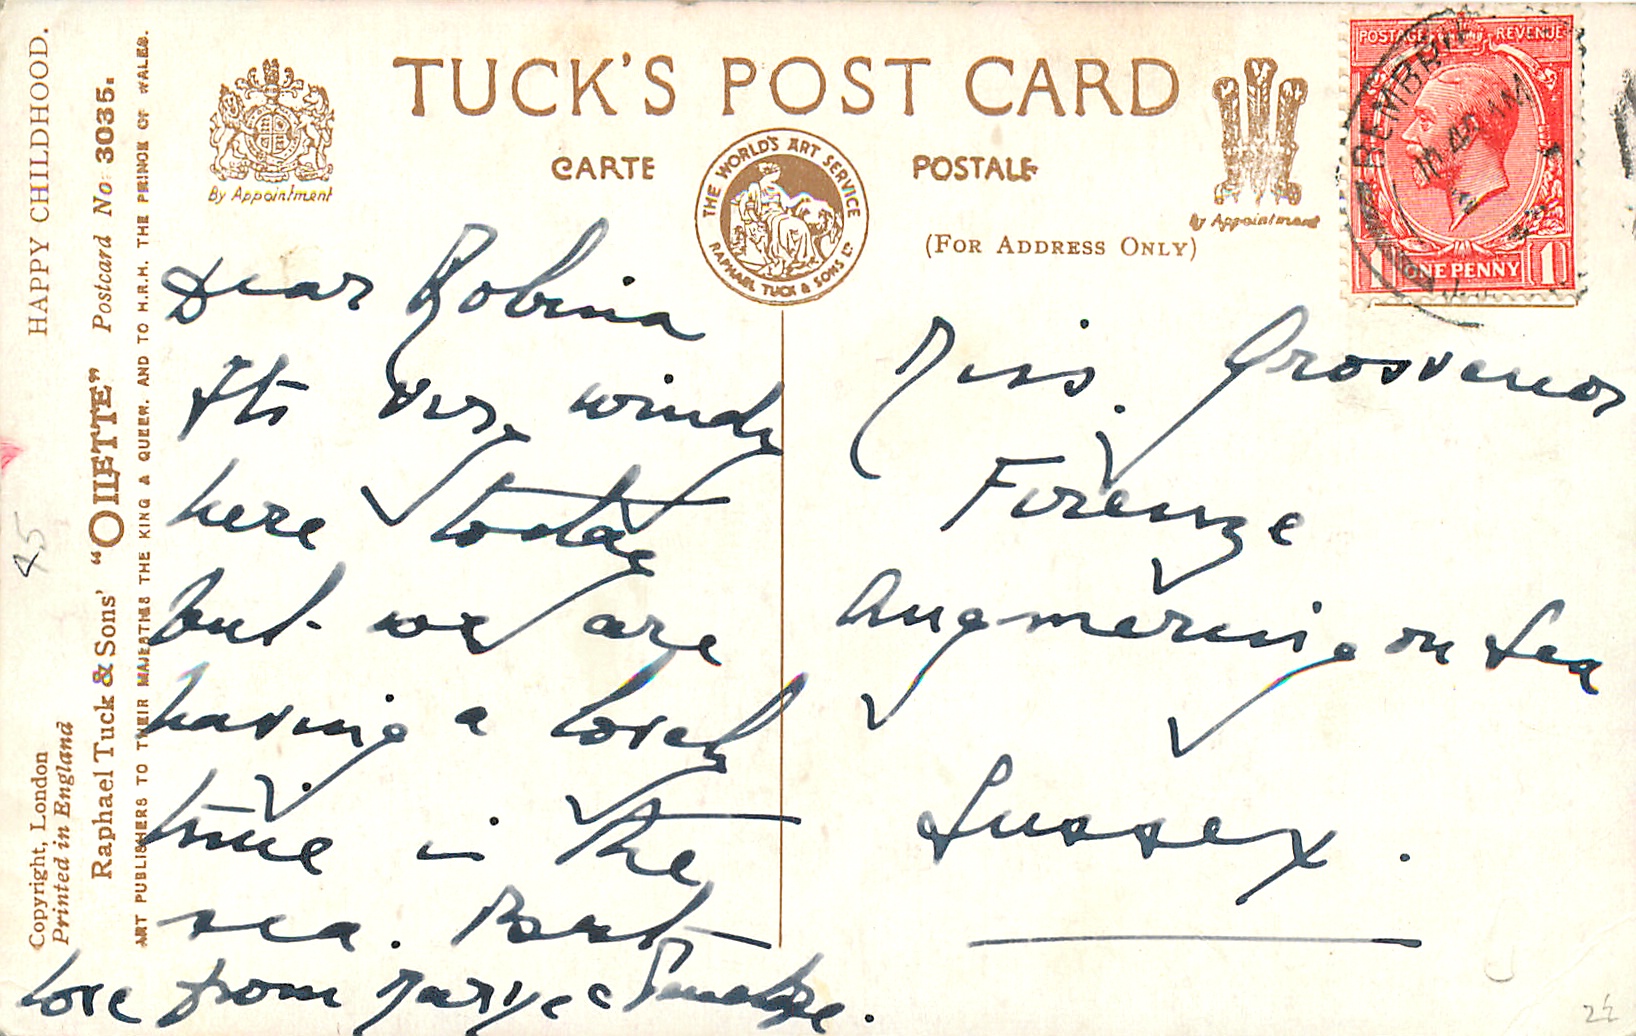 TUCK'S POST CARD
CARTE POSTALE
(FOR ADDRESS ONLY)
By Appointment
By Appointment
THE WORLD'S ART SERVICE
RAPHAEL TUCK & SONS LTD
POSTAGE REVENUE
ONE PENNY
1 1
BEMBRI
HAPPY CHILDHOOD.
Copyright, London
Printed in England
Raphael Tuck & Sons' "OILETTE" Postcard No 3035.
ART PUBLISHERS TO THEIR MAJESTIES THE KING & QUEEN, AND TO H.R.H. THE PRINCE OF WALES.
45
Dear Robina
Its very windy
here today
but we are
having a lovely
time in the
sea. Best
love from
Miss. Grosvenor
Firenze
Angmering on Sea
Sussex.
22